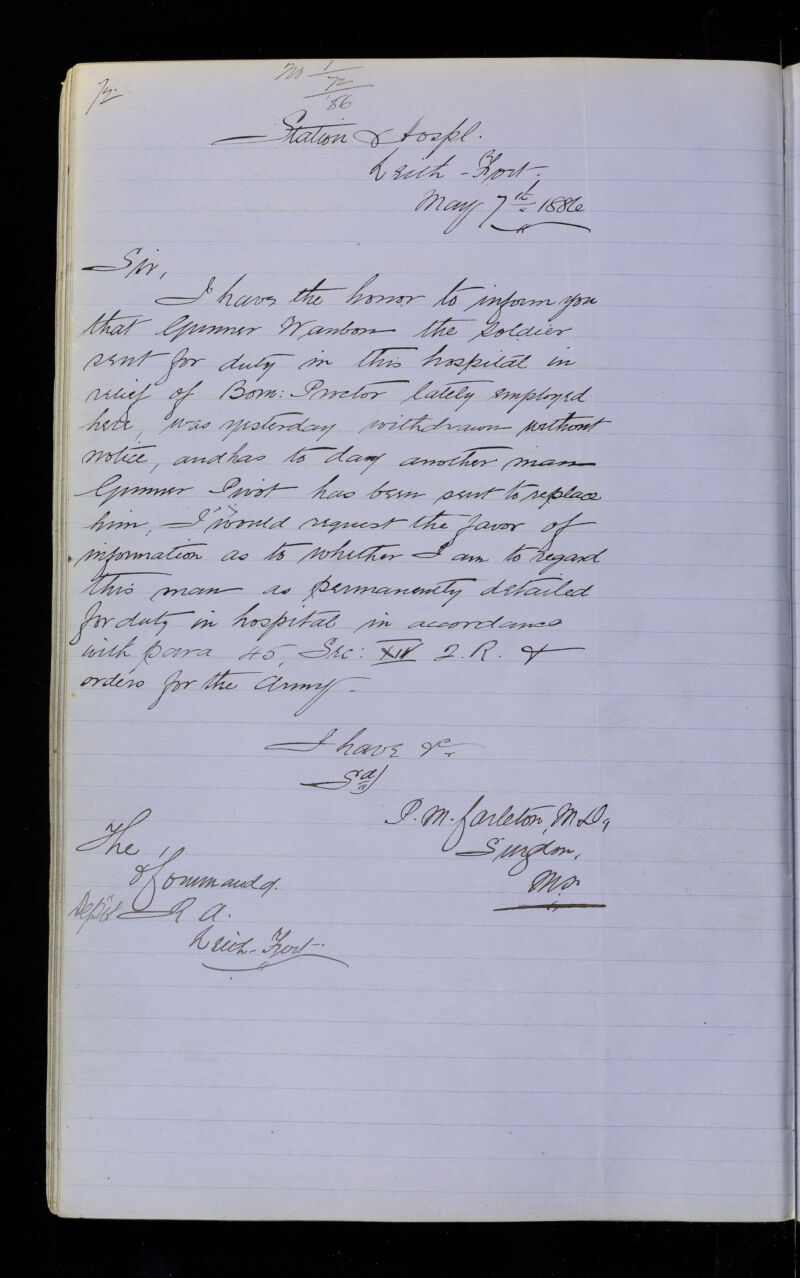 72
No 1/72/86
Station Hospl.
Leith-Fort.
May 7th 1886
Sir,
I have the honor to inform you
that Gunner Wanbon the soldier
sent for duty in this hospital in
relief of Bom: Proctor lately employed
here, was yesterday withdrawn without
notice, and has to day another man
Gunner Pivot has been sent to replace
him, I would request the favor of
information as to whether I am to regard
this man as permanently detailed
for duty in hospital in accordance
with para 45, Sec: XIV Q.R. &
orders for the Army.
I have &c
Sd/
P.M. Carleton, M.D,
Surgeon,
MS.
The
Off Commandg.
Depôt R A.
Leith-Fort.